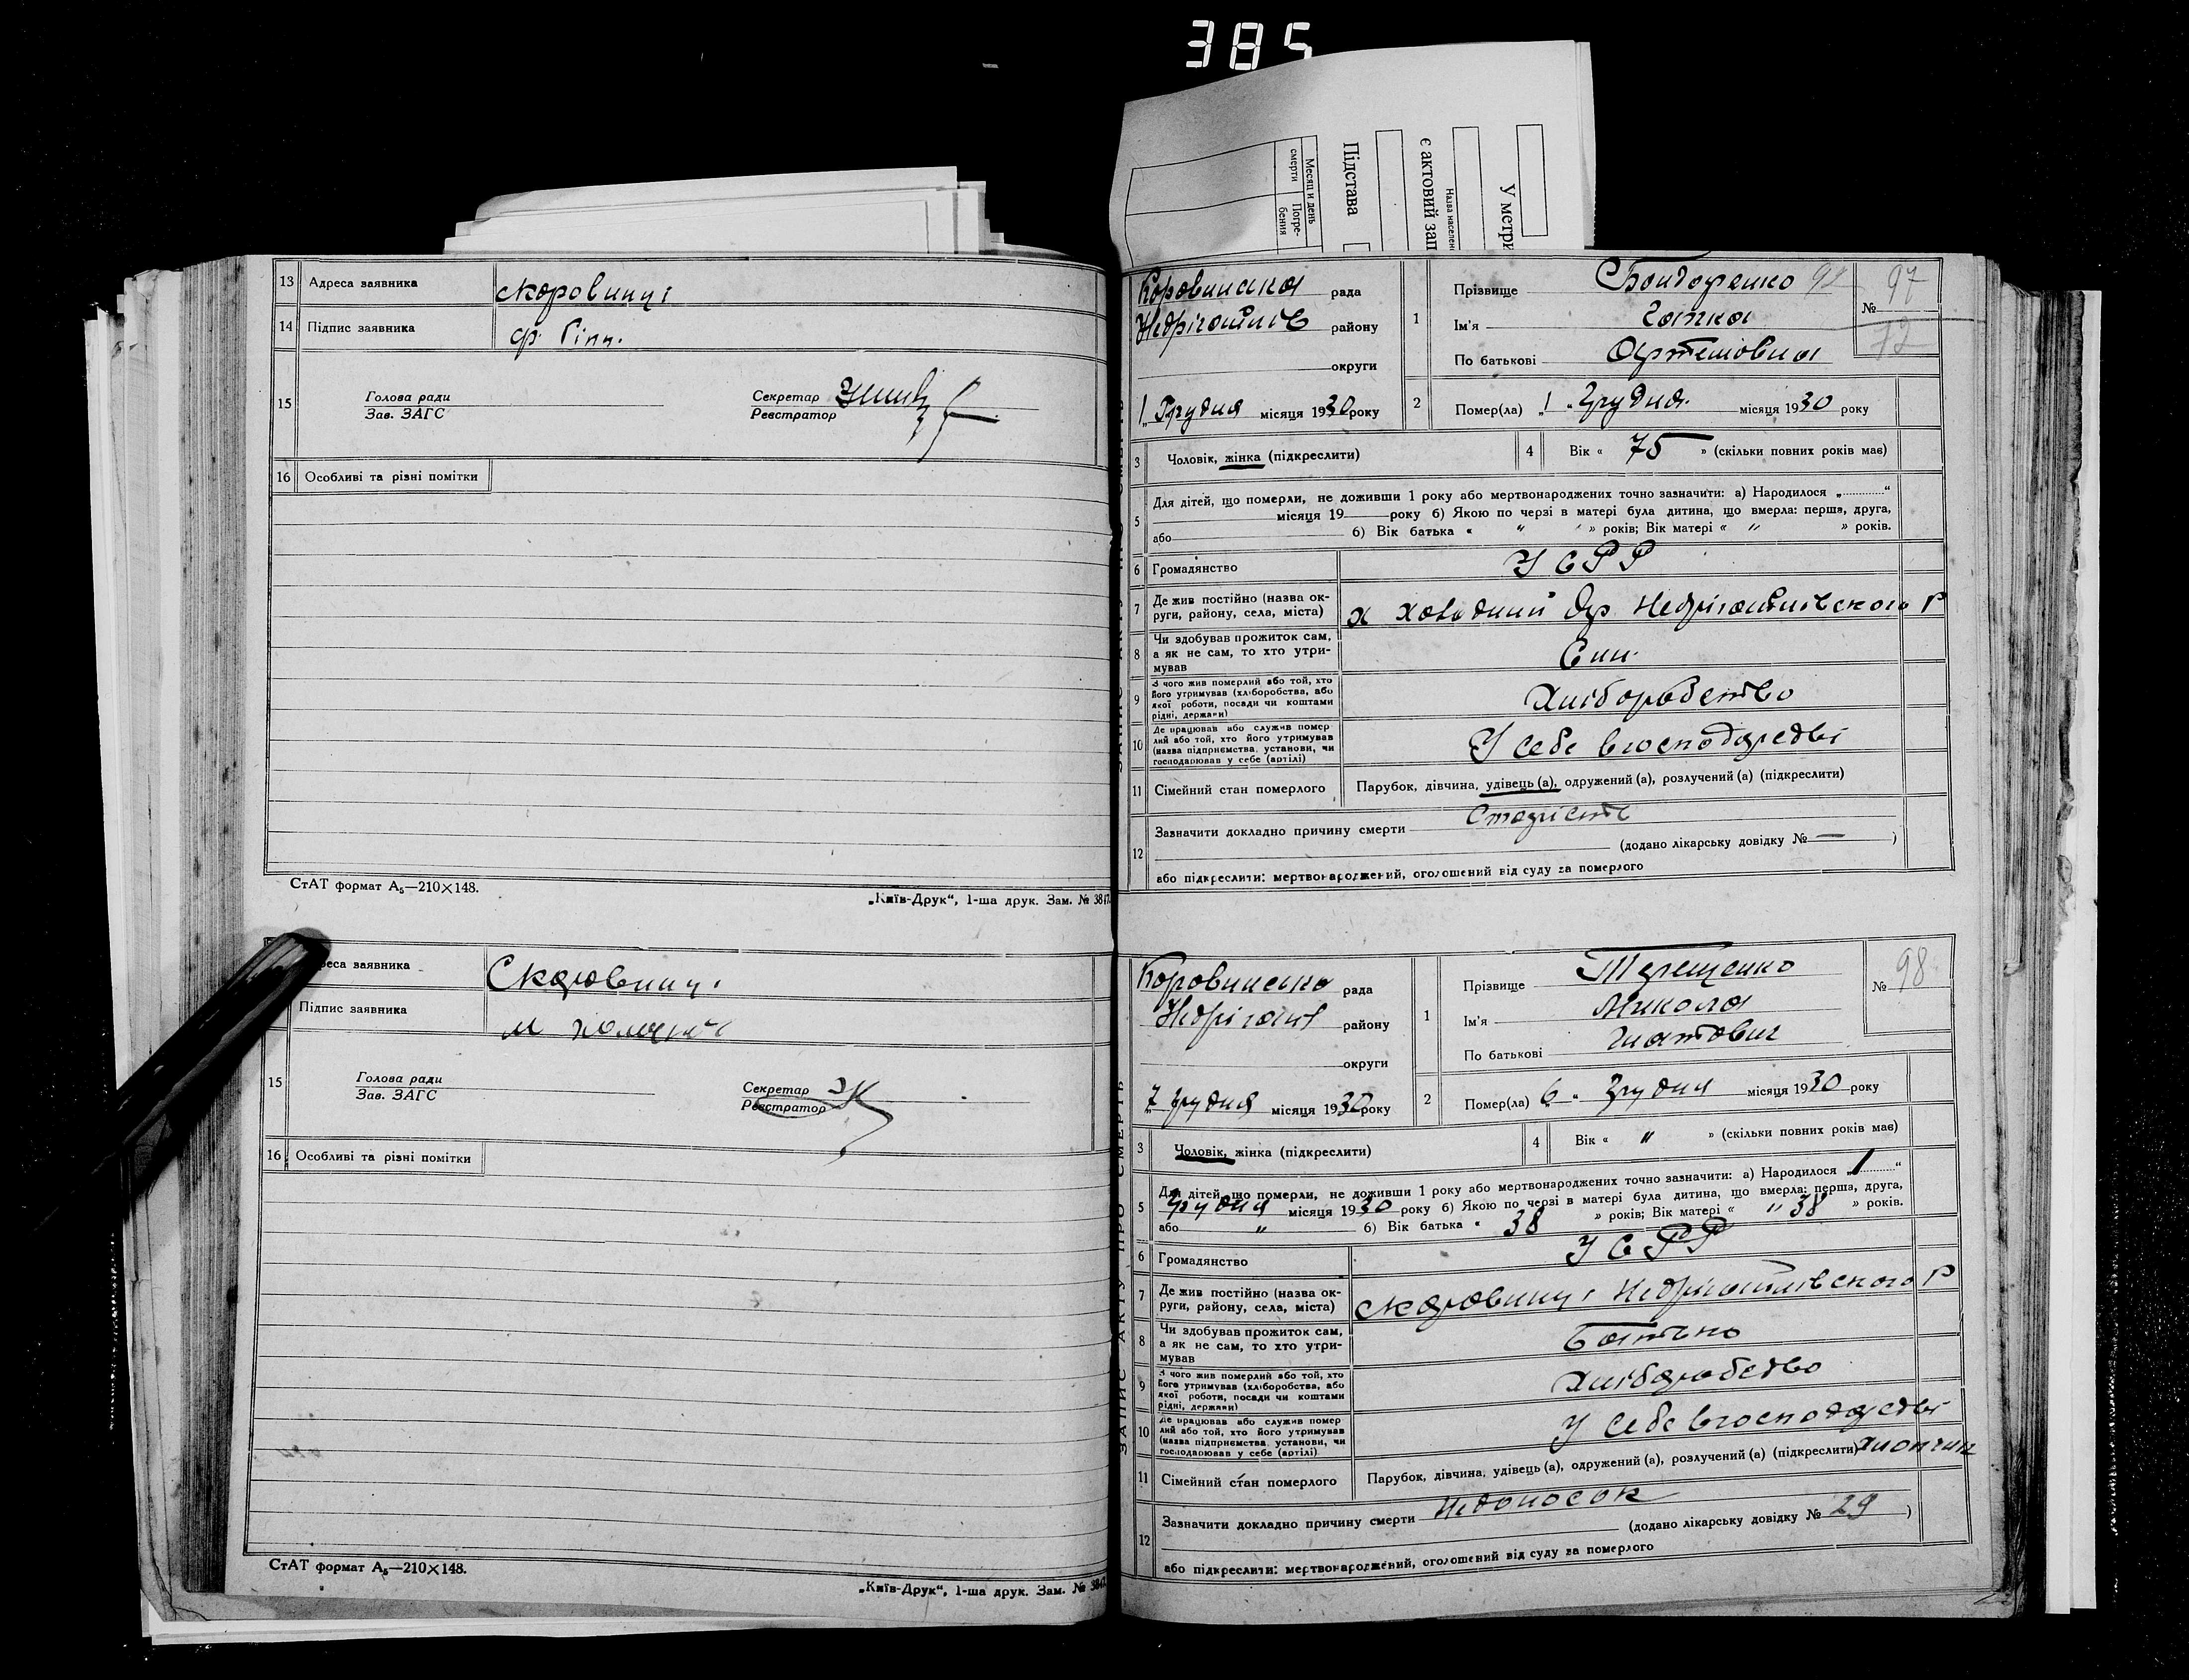 385
Месяц и день
смерти
Погре-
бения
Підстава
є актовий зап
Назва населен
У метри
13 Адреса заявника с Коровинці
14 Підпис заявника
15 Голова ради
Зав. ЗАГС
Секретар
Реєстратор
16 Особливі та різні помітки
СтАТ формат А₅—210×148.
„Київ-Друк“, 1-ша друк. Зам. № 38
реса заявника С Коровинці
Підпис заявника
15 Голова ради
Зав. ЗАГС
Секретар
Реєстратор
16 Особливі та різні помітки
СтАТ формат А₅—210×148.
„Київ-Друк“, 1-ша друк. Зам. №
Коровинська рада
Недрігайлів району
округи
1 Грудня місяця 1930 року
1 Прізвище Бондаренко
Ім'я Гапка
По батькові Артемовна
№ 97
72
2 Помер(ла) „1“ Грудня місяця 1930 року
3 Чоловік, жінка (підкреслити)
4 Вік « 75 » (скільки повних років має)
5 Для дітей, що померли, не доживши 1 року або мертвонароджених точно зазначити: а) Народилося „ “
місяця 19 року б) Якою по черзі в матері була дитина, що вмерла: перша, друга,
або б) Вік батька « " » років; Вік матері « " » років.
6 Громадянство УСРР
7 Де жив постійно (назва ок-
руги, району, села, міста) х Недрігайлівского Р
8 Чи здобував прожиток сам,
а як не сам, то хто утри-
мував Син
9 З чого жив померлий або той, хто
його утримував (хліборобства, або
якої роботи, посади чи коштами
рідні, держави) Хліборобство
10 Де працював або служив помер
лий або той, хто його утримував
(назва підприємства, установи, чи
господарював у себе (артілі) У себе в господарстві
11 Сімейний стан померлого Парубок, дівчина, удівець (а), одружений (а), розлучений (а) (підкреслити)
12 Зазначити докладно причину смерти Старість
(додано лікарську довідку № — )
або підкреслити: мертвонароджений, оголошений від суду за померлого
ЗАПИС АКТУ ПРО СМЕРТЬ
Коровинська рада
Недрігайл району
округи
7 грудня місяця 1930 року
1 Прізвище Терещенко
Ім'я Микола
По батькові Гнатович
№ 98
2 Помер(ла) „6“ Грудня місяця 1930 року
3 Чоловік, жінка (підкреслити)
4 Вік « " » (скільки повних років має)
5 Для дітей, що померли, не доживши 1 року або мертвонароджених точно зазначити: а) Народилося „1“
Грудня місяця 1930 року б) Якою по черзі в матері була дитина, що вмерла: перша, друга,
або " б) Вік батька « 38 » років; Вік матері « " 38 » років.
6 Громадянство УСРР
7 Де жив постійно (назва ок-
руги, району, села, міста) с Коровинці Недрігайлівского Р
8 Чи здобував прожиток сам,
а як не сам, то хто утри-
мував Батько
9 З чого жив померлий або той, хто
його утримував (хліборобства, або
якої роботи, посади чи коштами
рідні, держави) Хліборобство
10 Де працював або служив помер
лий або той, хто його утримував
(назва підприємства, установи, чи
господарював у себе (артілі) У себе в господарстві
11 Сімейний стан померлого Парубок, дівчина, удівець (а), одружений (а), розлучений (а) (підкреслити) хлопчик
12 Зазначити докладно причину смерти Недоносок
(додано лікарську довідку № 29 )
або підкреслити: мертвонароджений, оголошений від суду за померлого